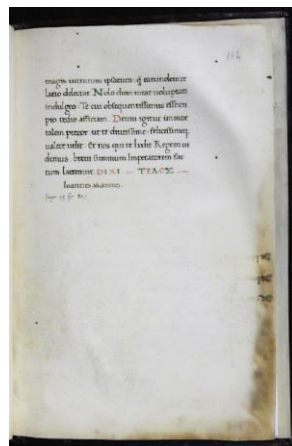 112
magis uirtutum ipsarum. q̃ earundem re
latio delectat. Nolo dum tuae uoluptati
indulgeo. Te cui obsequentissimus esse cu
pio tedio afficiam. Deum igitur immor
talem precor. ut te diutissime felicissimeq;
ualere uelit. Et nos qui te hodie Regem ui
dimus. breui summum Imperatorem fac
tum laetemur. DIXI ΤΕΛΟΣ
Ioannes